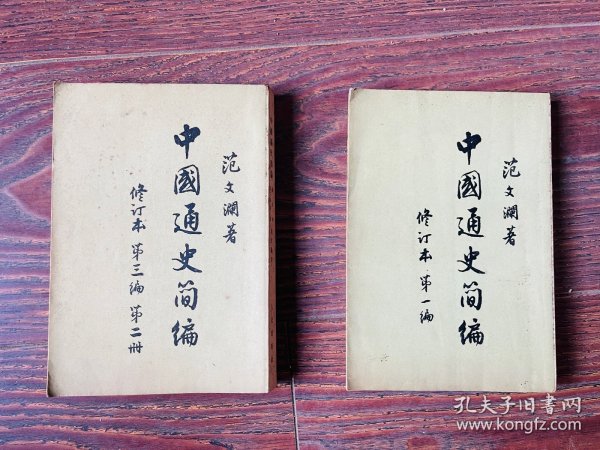 范文澜著
中國通史简编
修订本 第三编 第二册
范文澜著
中國通史简编
修订本 第一编
孔夫子旧书网
www.kongfz.com